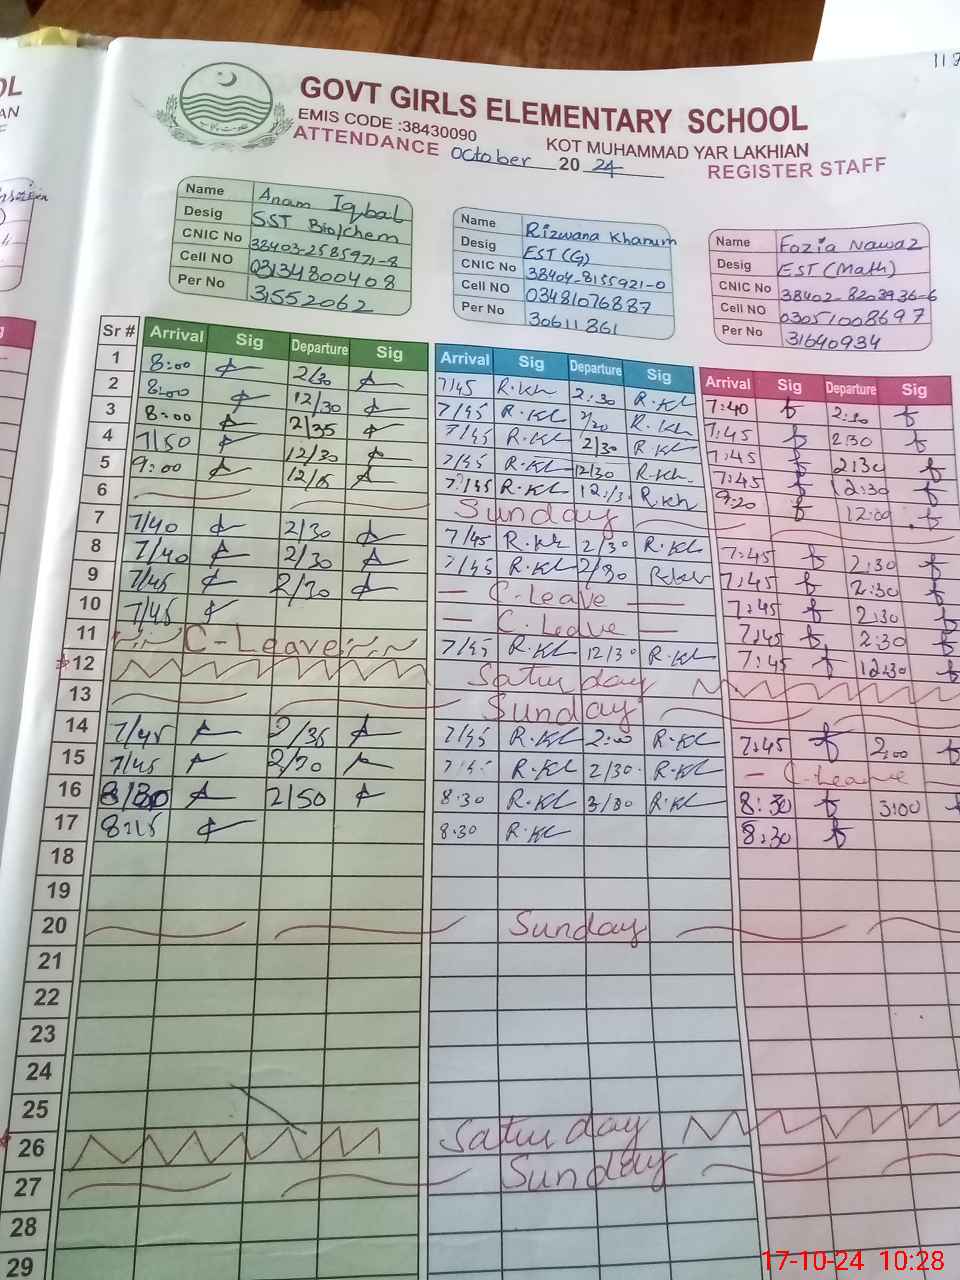 GOVT GIRLS ELEMENTARY SCHOOL
EMIS CODE :38430090 KOT MUHAMMAD YAR LAKHIAN
ATTENDANCE October 2024 REGISTER STAFF
Name Anam Iqbal
Desig SST Bio/chem
CNIC No 38403-2585971-8
Cell NO 03134800408
Per No 31552062
Name Rizwana Khanum
Desig EST (G)
CNIC No 38404-8155921-0
Cell NO 03481076887
Per No 30611861
Name Fozia Nawaz
Desig EST (Math)
CNIC No 38402-8203936-6
Cell NO 03051008697
Per No 31640934
Sr # Arrival Sig Departure Sig Arrival Sig Departure Sig Arrival Sig Departure Sig
1 8:00 2/30 7/45 R.Kh 2:30 R.Kh 7:40 2:30
2 8:00 12/30 7/45 R.Kh R.Kh 7:45 2:30
3 8:00 2/35 7/45 R.Kh 2/30 R.Kh 7:45 2:30
4 7/50 12/30 7/45 R.Kh 12/30 R.Kh 7:45 12:30
5 9:00 7:45 R.Kh R.Kh 9:20 12:00
6 Sunday
7 7/40 2/30 7/45 R.Kh 2/30 R.Kh 7:45 2:30
8 7/40 2/30 7/45 R.Kh 2/30 7:45 2:30
9 7/45 2/30 C.leave 7:45 2:30
10 7/45 C.Leave 7:45 2:30
11 C-Leave 7/45 R.Kh 12/30 R.Kh 7:45 12:30
12 Saturday
13 Sunday
14 7/45 2/35 7/45 R.Kh 2:00 R.Kh 7:45 2:00
15 7/45 7/45 R.Kh 2/30 R.Kh C.Leave
16 2/50 8:30 R.Kh R.Kh 8:30 3:00
17 8:15 8:30 R.Kh 8:30
18
19
20 Sunday
21
22
23
24
25
26 Saturday
27 Sunday
28
29
17-10-24 10:28